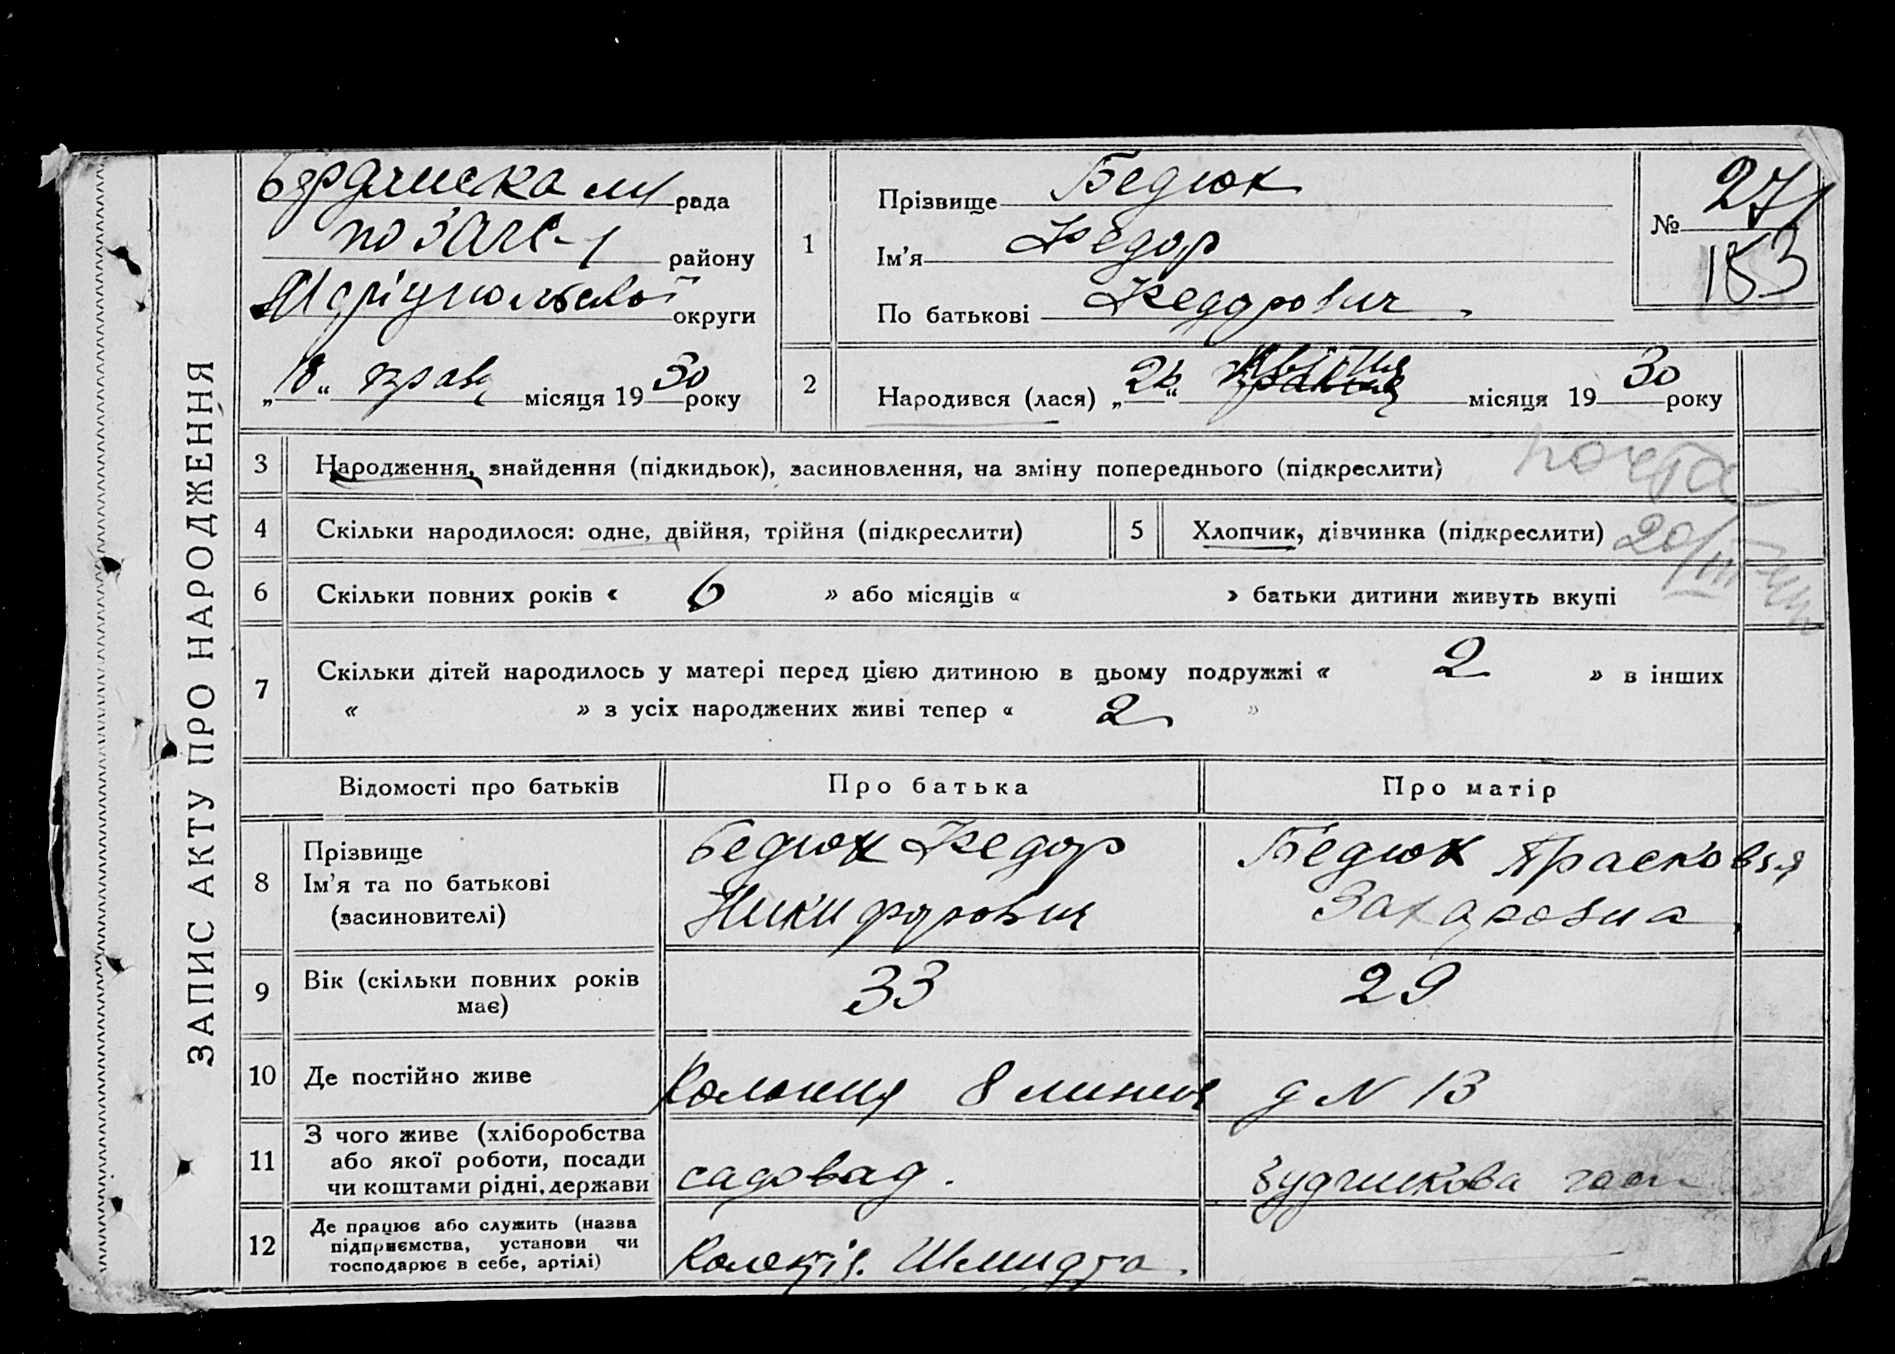 ЗАПИС АКТУ ПРО НАРОДЖЕННЯ
рада
по ЗАГС-у району
Маріупольської округи
„18“ трав місяця 1930 року
1 Прізвище Бедюк
Ім'я Федор
По батькові Федорович
№ 271
153
2 Народився (лася) „26“ Квітня місяця 1930 року
3 Народження, знайдення (підкидьок), засиновлення, на зміну попереднього (підкреслити)
4 Скільки народилося: одне, двійня, трійня (підкреслити) 5 Хлопчик, дівчинка (підкреслити)
6 Скільки повних років « 6 » або місяців « » батьки дитини живуть вкупі
7 Скільки дітей народилось у матері перед цією дитиною в цьому подружжі « 2 » в інших
« » з усіх народжених живі тепер « 2 »
Відомості про батьків Про батька Про матір
8 Прізвище
Ім'я та по батькові
(засиновителі)
Бедюк Федор
Никифорович
Бедюк Прасковья
Захаровна
9 Вік (скільки повних років
має)
33 29
10 Де постійно живе Колония 8 линия д N 13
11 З чого живе (хліборобства
або якої роботи, посади
чи коштами рідні, держави
садовад.
12 Де працює або служить (назва
підприємства, установи чи
господарює в себе, артілі)
Колектів. Шмидта.